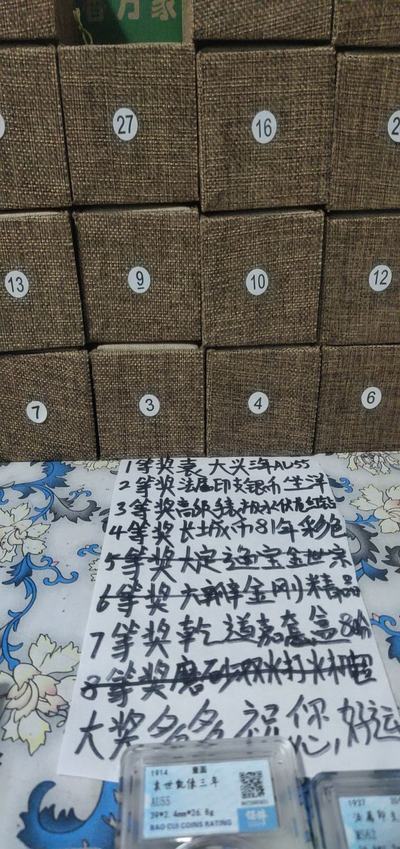 百万家
27
16
13
9
10
12
7
3
4
6
1等奖袁大头三年AU55
2等奖法属印支银币坐洋
3等奖高级手表
4等奖长城币81年彩包
5等奖大定通宝金世宗
6等奖大新绊金刚精品
7等奖乾道嘉套盒8枚
8等奖磨砂双米打米相宫
大奖多多祝您,好运
1914 壹圆
袁世凯像三年
AU55
39*2.4mm*26.6g
BAO CUI COINS RATING
1937
法属印支
MS62